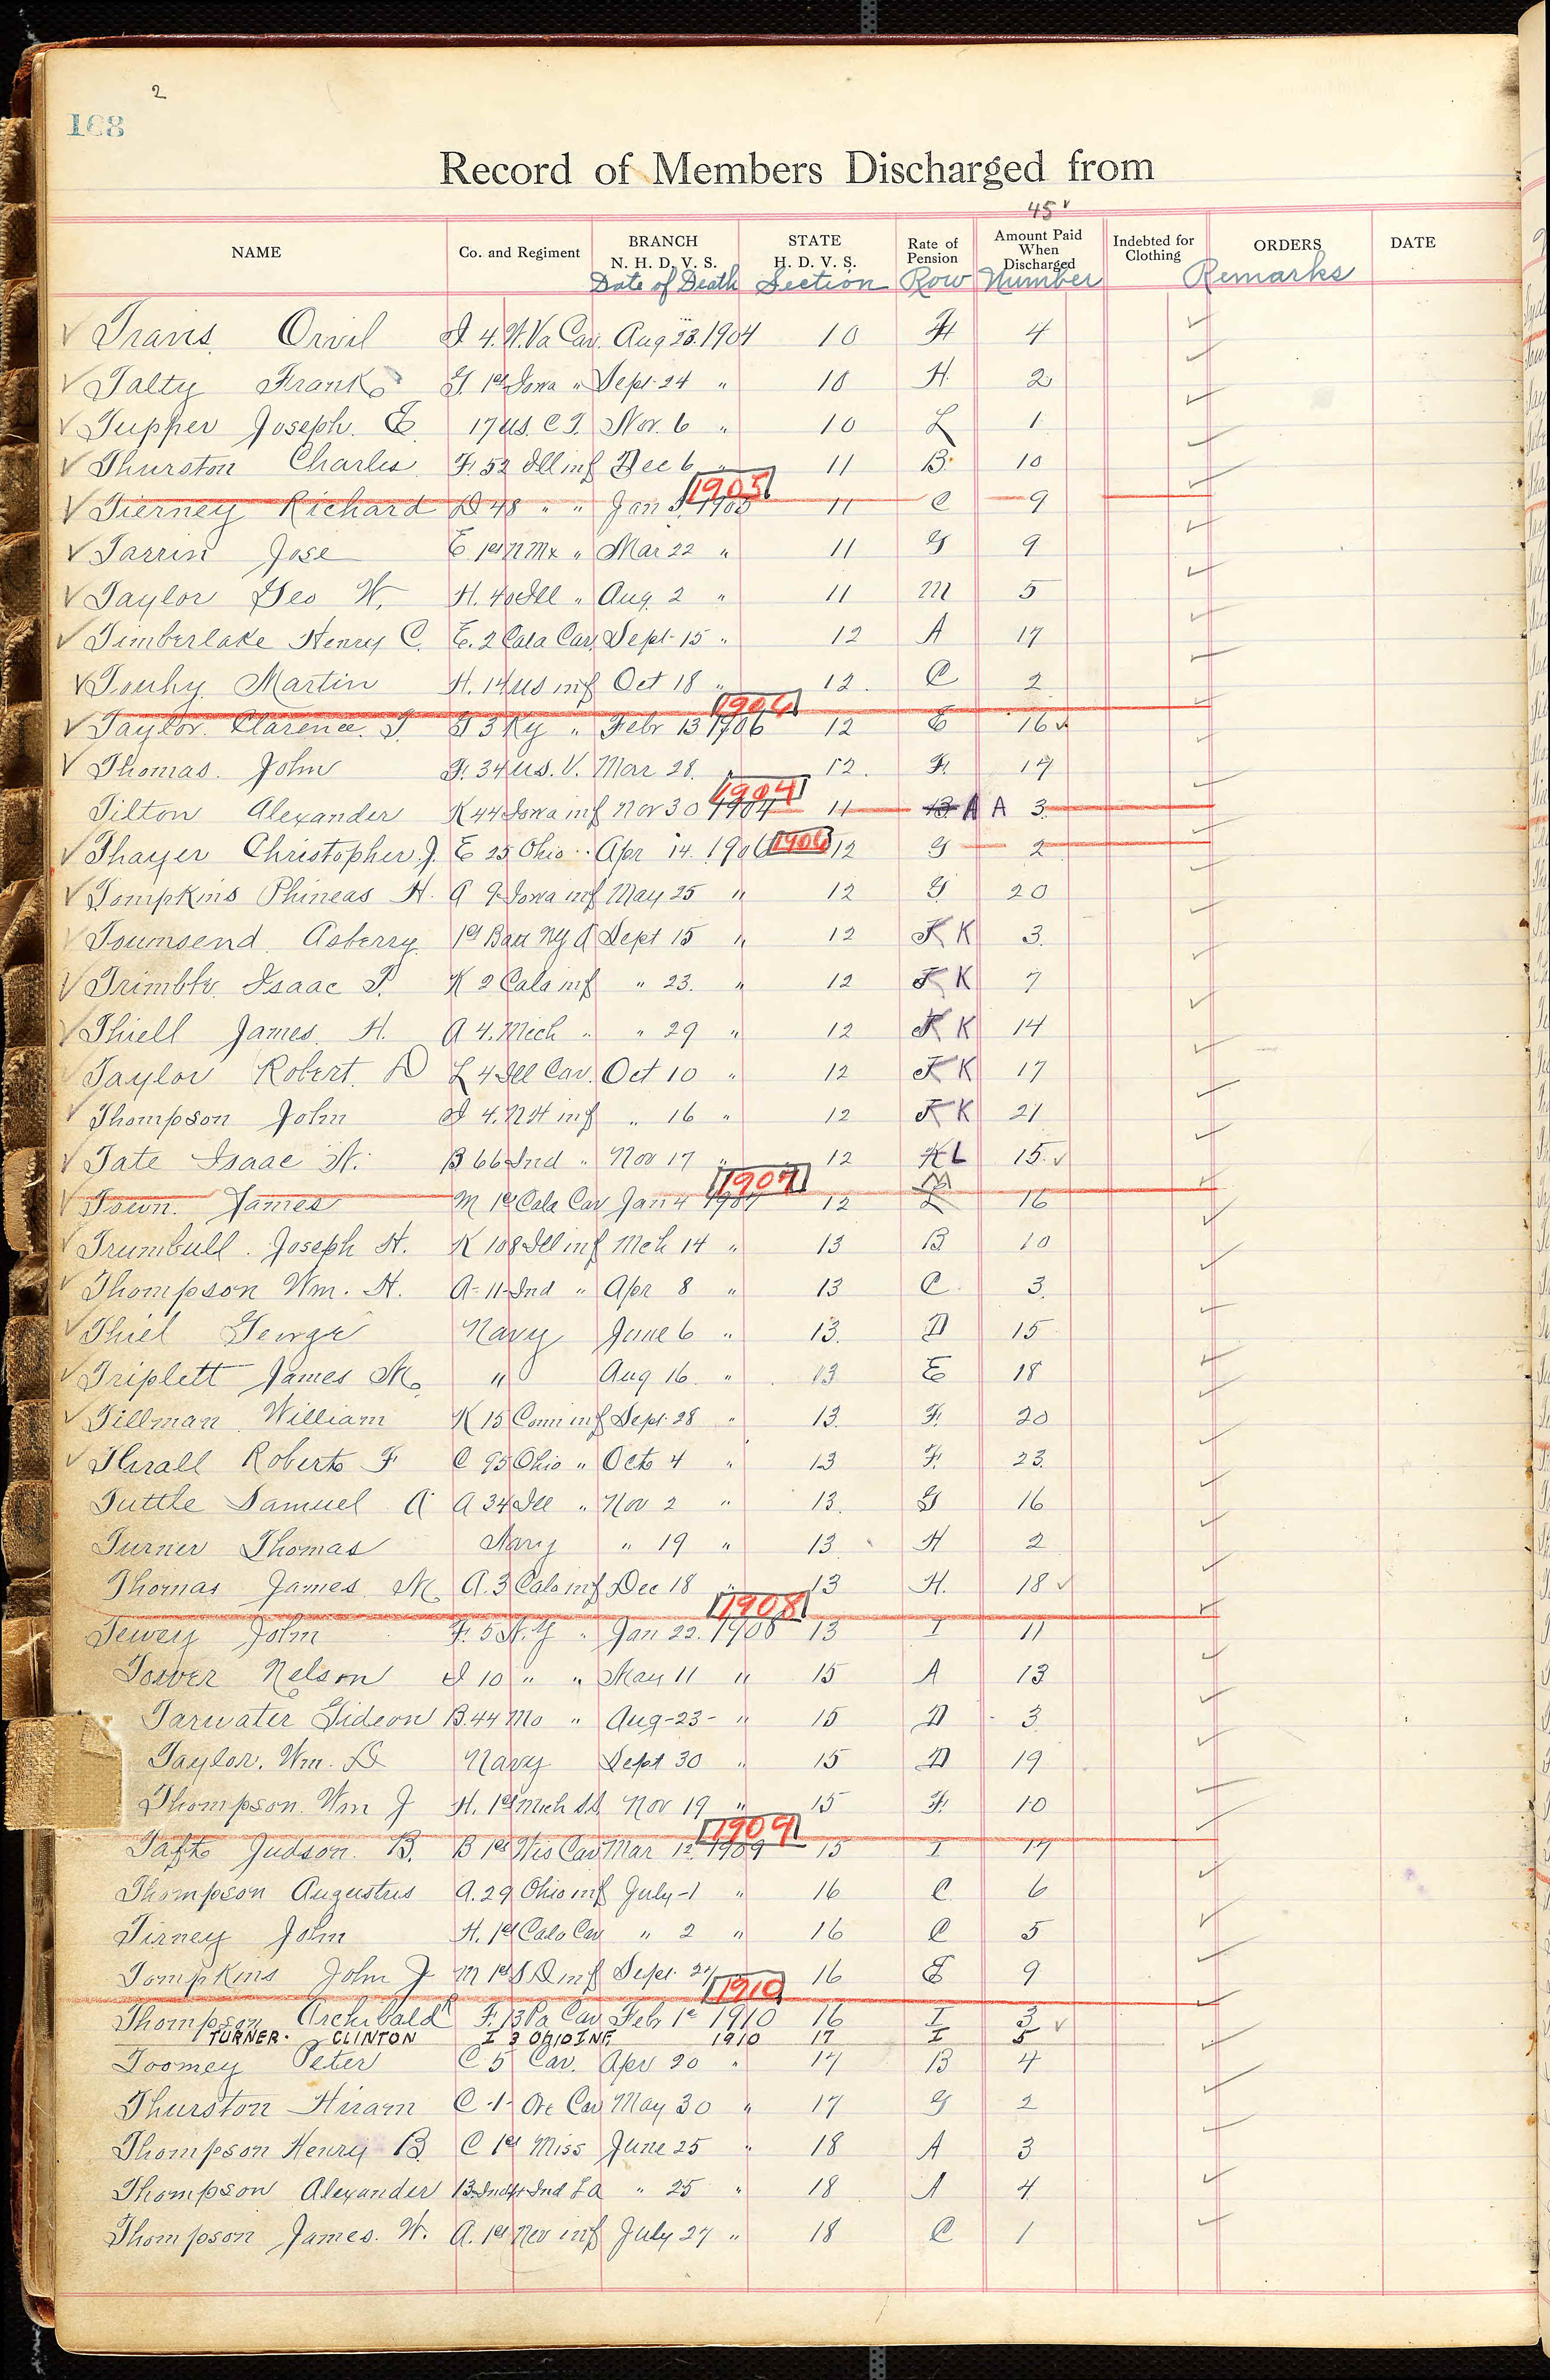 2
168
Record of Members Discharged from
45 v
NAME Co. and Regiment BRANCH N. H. D. V. S. STATE H. D. V. S. Rate of Pension Amount Paid When Discharged Indebted for Clothing ORDERS DATE
Date of Death Section Row Number Remarks
✓ Travis. Orvil I 4. W. Va Cav. Aug 23. 1904 10 H 4 ✓
✓ Talty Frank G 1st Iowa " Sept. 24 " 10 H. 2 ✓
✓ Tupper Joseph. E. 17 U.S. C.I. Nov. 6 " 10 L 1 ✓
✓ Thurston Charles F. 52 Ill inf Dec 6 " 11 B. 10 ✓
1905
✓ Tierney Richard D 48 " " Jan 3. 1905 11 C 9 ✓
✓ Tarrin Jose E 1st N Mx " Mar 22 " 11 G 9 ✓
✓ Taylor Geo W. H. 40 Ill " Aug. 2 " 11 M 5 ✓
✓ Timberlake Henry C. E. 2 Cala Cav. Sept. 15 " 12 A 17 ✓
✓ Touhy Martin H. 14 U.S inf Oct 18 " 12. C 2 ✓
1906
✓ Taylor. Clarence. T. G 3 Ky " Febr 13 1906 12 E 16 ✓ ✓
✓ Thomas. John F. 34 U.S. V. Mar 28. " 12. F. 17 ✓
1904
Tilton Alexander K 44 Iowa inf Nov 30 1904 11 B A A 3. ✓
✓ Thayer Christopher. J. E 25 Ohio " Apr 14. 1906 1906 12 G 2 ✓
✓ Tompkins Phineas H. A 9 Iowa inf May 25 " 12 G 20 ✓
✓ Townsend Asberry 1st Batt NY A Sept 15 " 12 J K 3. ✓
✓ Trimble Isaac P. K 2 Cala inf " 23. " 12 J K 7 ✓
✓ Thiell James. H. A 4. Mich " " 29 " 12 J K 14 ✓
✓ Taylor Robert. D L 4 Ill Cav. Oct 10 " 12 J K 17 ✓
✓ Thompson John I 4. N H inf " 16 " 12 J K 21 ✓
✓ Tate Isaac N. B 66 Ind " Nov 17 " 12 K L 15. ✓ ✓
1907
✓ Town. James M 1st Cala Cav Jan 4 1907 12 L M 16 ✓
✓ Trumbull. Joseph H. K 108 Ill inf Mch 14 " 13 B 10 ✓
✓ Thompson Wm. H. A - 11 - Ind " Apr 8 " 13 C 3. ✓
✓ Thiel George Navy June 6 " 13. D 15 ✓
✓ Triplett James M. " Aug 16 " 13 E 18 ✓
✓ Tillman William K 15 Conn inf Sept. 28 " 13. F. 20 ✓
✓ Thrall Robert F C 95 Ohio " Oct 4 " 13 F. 23. ✓
Tuttle Samuel A A 34 Ill " Nov 2 " 13. G 16 ✓
Turner Thomas Navy " 19 " 13. H 2 ✓
Thomas James M A. 3 Cala inf Dec 18 " 13 H. 18 ✓ ✓
1908
Tewey John F. 5 N. Y " Jan 22. 1908 13 I 11 ✓
Tower Nelson I 10 " " May 11 " 15 A 13 ✓
Tarwater Gideon B. 44 Mo " Aug-23- " 15 D 3 ✓
Taylor. Wm. D Navy Sept 30 " 15 D 19 ✓
Thompson. Wm J H. 1st Mich S.S. Nov 19 " 15 F. 10 ✓
1909
Taft Judson. B. B 1st Wis Cav Mar 12. 1909 15 I 17 ✓
Thompson Augustus A. 29 Ohio inf July-1 " 16 C 6 ✓
Tirney John H. 1st Calo Cav " 2 " 16 C 5 ✓
Tompkins John J M 1st S D inf Sept. 27 16 E 9 ✓
1910
Thompson Archibald R F. 13 Pa Cav Feb 1st 1910 16 I 3 ✓ ✓
TURNER. CLINTON I 3 OHIO INF. 1910 17 I 5
Toomey Peter C 5 Cav. Apr 20 " 17 B 4 ✓
Thurston Hiram C -1- Ore Cav May 30 " 17 G 2 ✓
Thompson Henry B. C 1st Miss June 25 " 18 A 3 ✓
Thompson Alexander 13 Indpt Ind La " 25 " 18 A 4 ✓
Thompson James. W. A. 1st Nev inf July 27 " 18 C 1 ✓